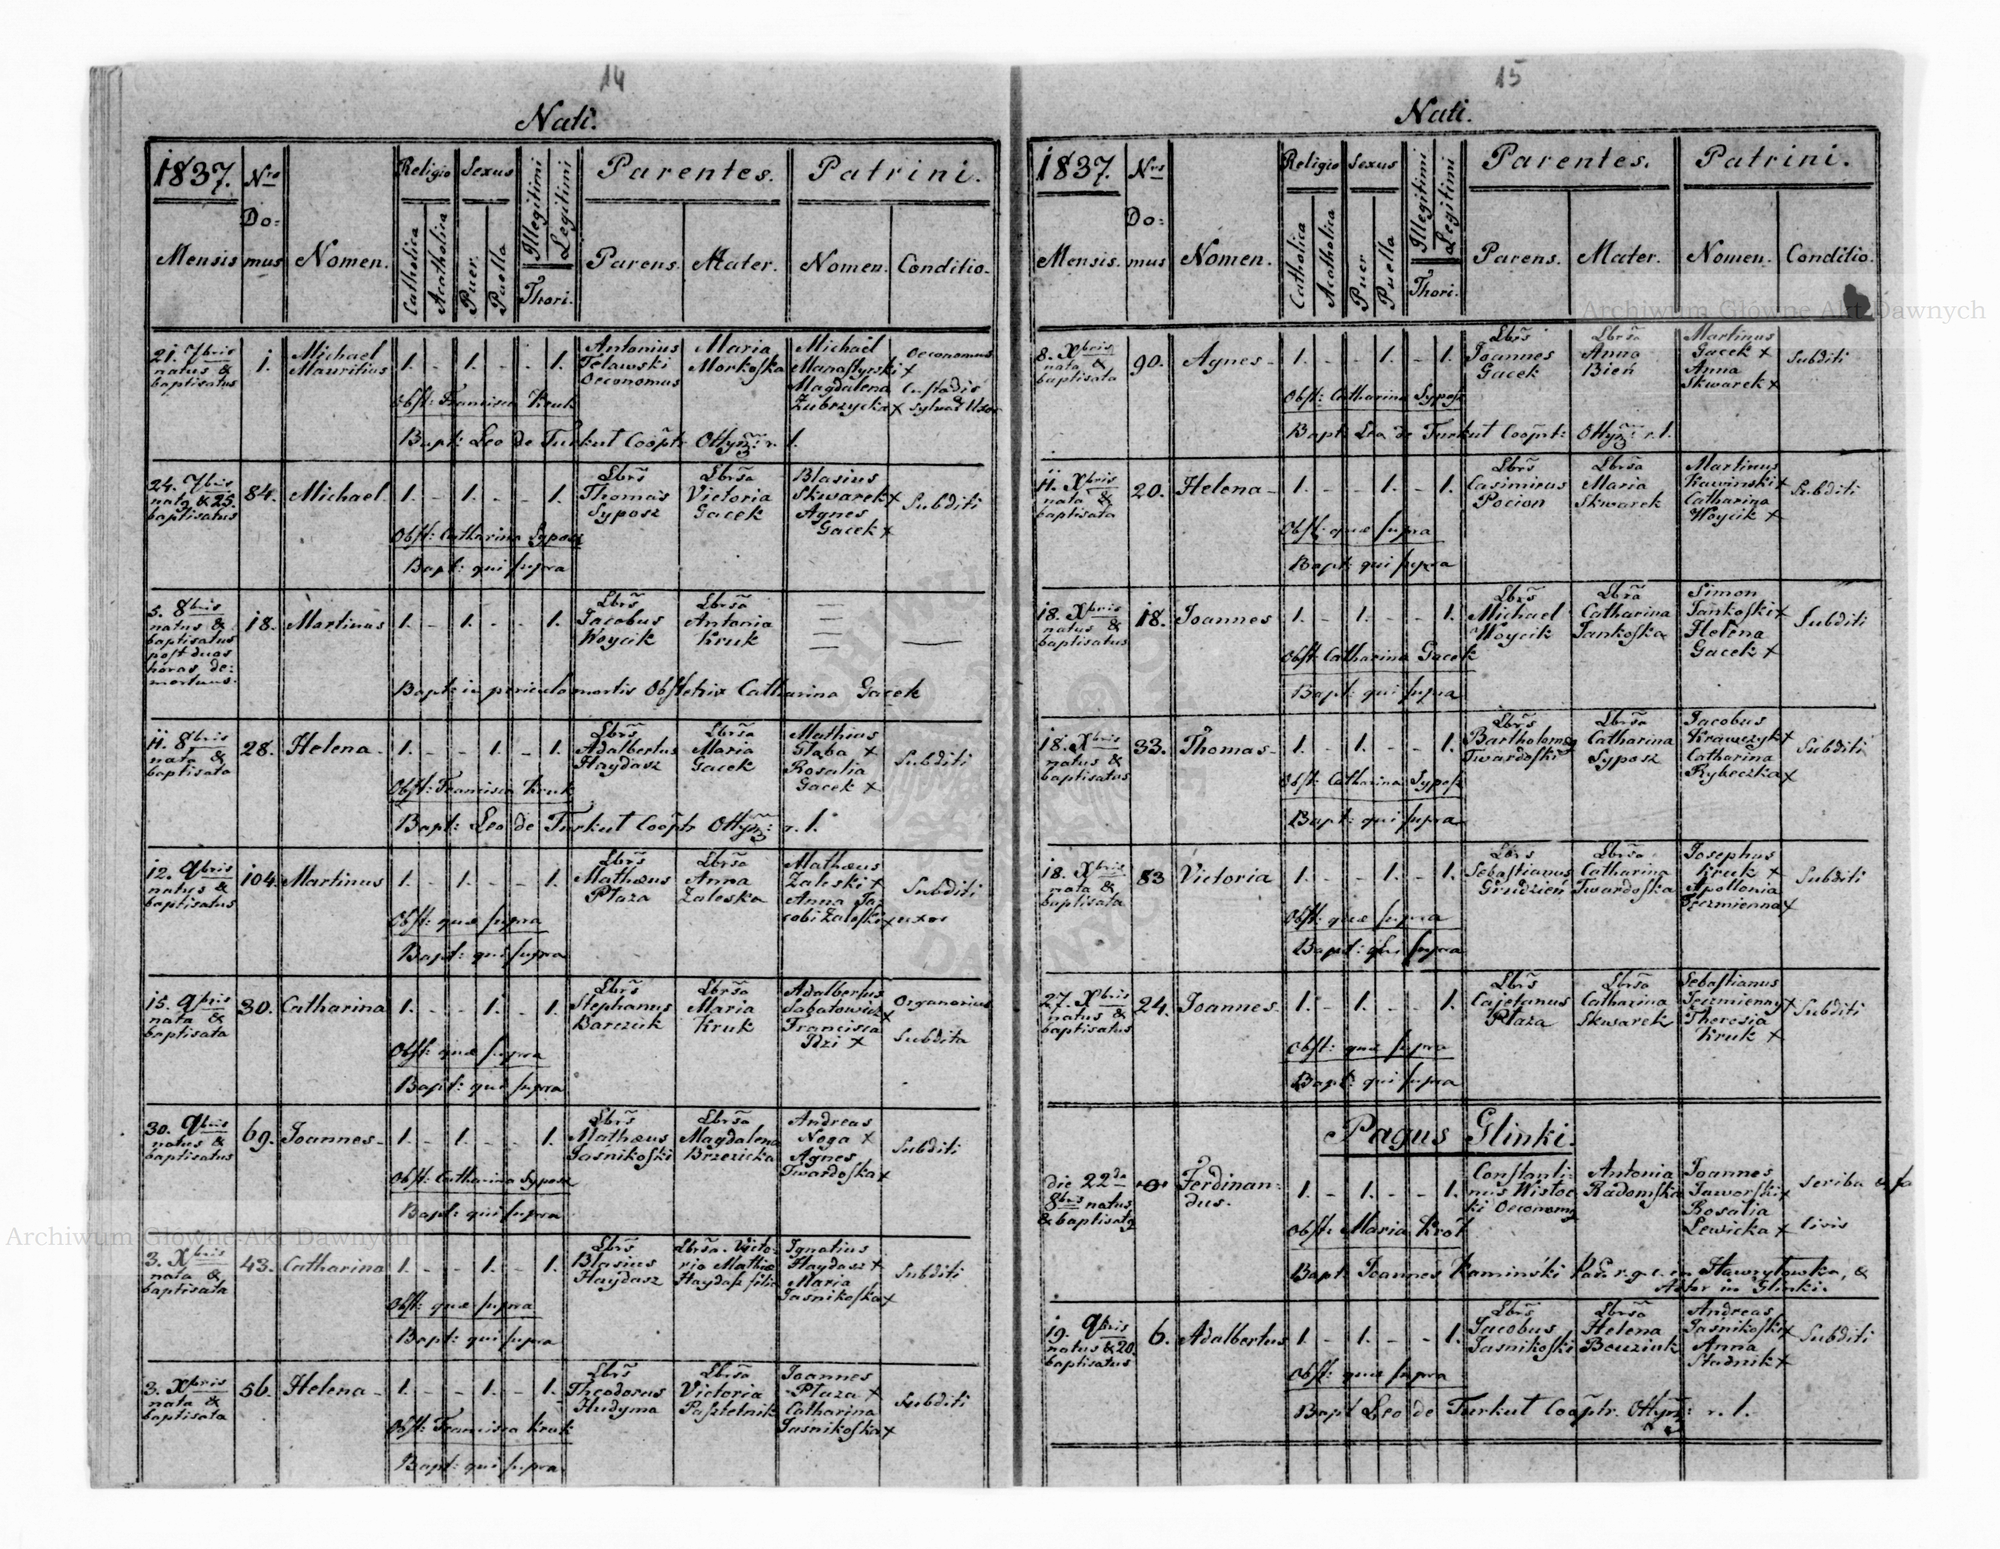 14
Nati.
1837. Nro Domus Nomen. Religio Sexus Illegitimi Legitimi Parentes. Patrini.
Mensis Catholica Acatholica Puer Puella Thori. Parens. Mater. Nomen. Conditio.
21. 7bris 1. Michael 1. - 1. - - 1. Antonius Maria Michael Oeconomus
natus & Mauritius Telawski Morkoſka Manaſtyrski x
baptisatus Oeconomus Magdalena Custodis
Obſt: Francisca Kruk Zubrzycka x sylvae Uxor
Bapt: Leo de Turkut Cooptr Ottyn: r. l.
24. 7bris 84. Michael 1. - 1. - - 1. Lbrs Lbrsa Blasius Subditi
nat9 & 25. Thomas Victoria Skwarek x
baptisatus Syposz Gacek Agnes
Gacek x
Obſt: Catharina Syposz
Bapt: qui ſupra
5. 8bris 18. Martinus 1. - 1. - - 1. Lbrs Lbrsa
natus & Jacobus Antonia
baptisatus Woycik Kruk
poſt duas
horas de:
mortuus.
Bapt: in periculo mortis Obſtetrix Catharina Gacek
11. 8bris 28. Helena - 1. - - 1. - 1. Lbrs Lbrsa Mathias Subditi
nata & Adalbertus Maria Głaba x
baptisata Haydasz Gacek Rosalia
Gacek x
Obſt: Francisca Kruk
Bapt: Leo de Turkut Cooptr Ottyn: r. l.
12. 9bris 104. Martinus 1. - 1. - - 1. Lbrs Lbrsa Mathaeus Subditi
natus & Mathaeus Anna Zaleski x
baptisatus Płaza Zaleska Anna Ja:
Obſt: quae ſupra cobi Zaleſki x uxor
Bapt: qui ſupra
15. 9bris 30. Catharina 1. - - 1. - 1. Lbrs Lbrsa Adalbertus Organarius
nata & Stephanus Maria Sabatowicz x
baptisata Barczuk Kruk Francisca Subdita
Idzi x
Obſt: quae ſupra
Bapt: qui ſupra
30. 9bris 69. Joannes - 1. - 1. - - 1. Lbrs Lbrsa Andreas Subditi
natus & Mathaeus Magdalena Noga x
baptisatus Jasnikoſki Brzezicka Agnes
Twardoſka x
Obſt: Catharina Syposz
Bapt: qui ſupra
3. Xbris 43. Catharina 1. - - 1. - 1. Lbrs Lbrsa Victo: Ignatius Subditi
nata & Blasius ria Mathiae Haydasz x
baptisata Haydasz Haydaſz filia Maria
Jasnikoſka x
Obſt: quae ſupra
Bapt: qui ſupra
3. Xbris 56. Helena - 1. - - 1. - 1. Lbrs Lbrsa Joannes Subditi
nata & Theodorus Victoria Płaza x
baptisata Hudyma Paſztetnik Catharina
Jasnikoſka x
Obſt: Francisca Kruk
Bapt: qui ſupra
15
Nati.
1837. Nrus Domus Nomen. Religio Sexus Illegitimi Legitimi Parentes. Patrini.
Mensis. Catholica Acatholica Puer Puella Thori. Parens. Mater. Nomen. Conditio.
8. Xbris 90. Agnes - 1. - - 1. - 1. Lbrs Lbrsa Martinus Subditi
nata & Joannes Anna Gacek x
baptisata Gacek Bień Anna
Skwarek x
Obſt: Catharina Syposz
Bapt: Leo de Turkut Cooptr: Ottyn: r. l.
11. Xbris 20. Helena - 1. - - 1. - 1. Lbrs Lbrsa Martinus Subditi
nata & Casimirus Maria Kawinski x
baptisata Pocion Skwarek Catharina
Woycik x
Obſt: quae ſupra
Bapt: qui ſupra
18. Xbris 18. Joannes 1. - 1. - - 1. Lbrs Lbrsa Simon Subditi
natus & Michael Catharina Jankoſki x
baptisatus Woycik Jankoſka Helena
Gacek x
Obſt: Catharina Gacek
Bapt: qui ſupra
18. Xbris 33. Thomas - 1. - 1. - - 1. Lbrs Lbrsa Jacobus Subditi
natus & Bartholom9 Catharina Krawczyk x
baptisatus Twardoſki Syposz Catharina
Rybeczka x
Obſt: Catharina Syposz
Bapt: qui ſupra
18. Xbris 83 Victoria 1. - - 1. - 1. Lbrs Lbrsa Josephus Subditi
nata & Sebaſtianus Catharina Kruk x
baptisata Grudzień Twardoſka Apollonia
Jęczmienna x
Obſt: quae ſupra
Bapt: qui ſupra
27. Xbris 24. Joannes. 1. - 1. - - 1. Lbrs Lbrsa Sebaſtianus Subditi
natus & Cajetanus Catharina Jęczmienny x
baptisatus Płaza Skwarek Theresia
Kruk x
Obſt: quae ſupra
Bapt: qui ſupra
Pagus Glinki.
die 22da 0 Ferdinan: 1. - 1. - - 1. Conſtanti: Antonia Joannes Scriba
8bris natus dus. nus Wisłoc Radomſka Jaworſki x
& baptisat9 ki Oeconom9 Rosalia
Lewicka x Civis
Obſt: Maria Krot
Bapt: Joannes Kaminski Par. r. g. c. in Hawryłowka, &
Adtor in Glinki.
19. 9bris 6. Adalbertus 1. - 1. - - 1. Lbrs Lbrsa Andreas Subditi
natus & 20. Jacobus Helena Jasnikoſki x
baptisatus Jasnikoſki Bouziuk Anna
Studnik x
Obſt: quae ſupra
Bapt: Leo de Turkut Cooptr. Ottyn: r. l.
Archiwum Główne Akt Dawnych
Archiwum Główne Akt Dawnych